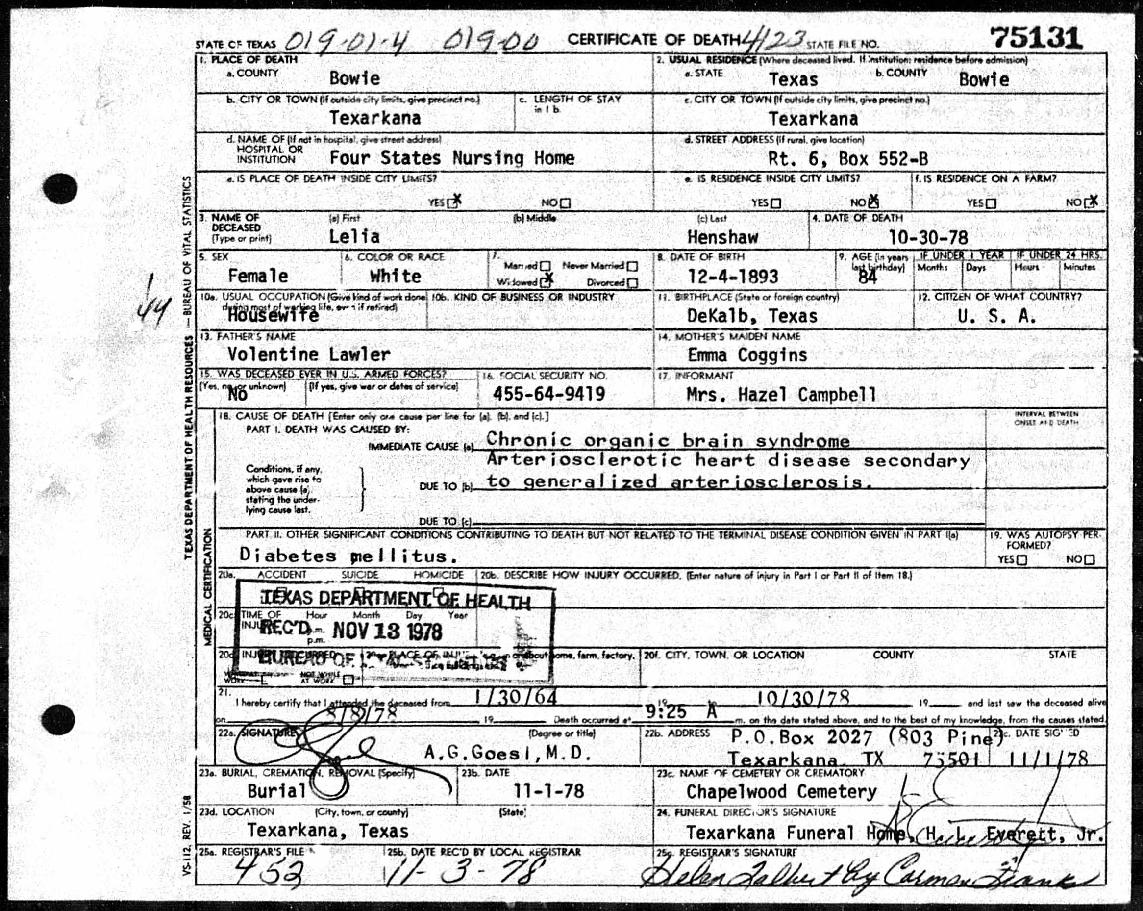 STATE OF TEXAS 019-01-4 019-00 CERTIFICATE OF DEATH 4123 STATE FILE NO. 75131
1. PLACE OF DEATH 2. USUAL RESIDENCE (Where deceased lived. If institution: residence before admission)
a. COUNTY Bowie a. STATE Texas b. COUNTY Bowie
b. CITY OR TOWN (If outside city limits, give precinct no.) c. LENGTH OF STAY in 1 b. c. CITY OR TOWN (If outside city limits, give precinct no.)
Texarkana Texarkana
d. NAME OF (If not in hospital, give street address) d. STREET ADDRESS (If rural, give location)
HOSPITAL OR INSTITUTION Four States Nursing Home Rt. 6, Box 552-B
e. IS PLACE OF DEATH INSIDE CITY LIMITS? e. IS RESIDENCE INSIDE CITY LIMITS? f. IS RESIDENCE ON A FARM?
YES X NO YES NO X YES NO X
3. NAME OF DECEASED (Type or print) (a) First (b) Middle (c) Last 4. DATE OF DEATH
Lelia Henshaw 10-30-78
5. SEX 6. COLOR OR RACE 7. Married Never Married 8. DATE OF BIRTH 9. AGE (In years last birthday) IF UNDER 1 YEAR IF UNDER 24 HRS.
Female White Widowed X Divorced 12-4-1893 84 Months Days Hours Minutes
10a. USUAL OCCUPATION (Give kind of work done during most of working life, even if retired) 10b. KIND OF BUSINESS OR INDUSTRY 11. BIRTHPLACE (State or foreign country) 12. CITIZEN OF WHAT COUNTRY?
Housewife DeKalb, Texas U. S. A.
13. FATHER'S NAME 14. MOTHER'S MAIDEN NAME
Volentine Lawler Emma Coggins
15. WAS DECEASED EVER IN U.S. ARMED FORCES? 16. SOCIAL SECURITY NO. 17. INFORMANT
(Yes, no, or unknown) (If yes, give war or dates of service)
No 455-64-9419 Mrs. Hazel Campbell
18. CAUSE OF DEATH [Enter only one cause per line for (a), (b), and (c).] INTERVAL BETWEEN ONSET AND DEATH
PART I. DEATH WAS CAUSED BY:
IMMEDIATE CAUSE (a) Chronic organic brain syndrome
Arteriosclerotic heart disease secondary
Conditions, if any, which gave rise to above cause (a), stating the underlying cause last.
DUE TO (b) to generalized arteriosclerosis.
DUE TO (c)
PART II. OTHER SIGNIFICANT CONDITIONS CONTRIBUTING TO DEATH BUT NOT RELATED TO THE TERMINAL DISEASE CONDITION GIVEN IN PART I(a) 19. WAS AUTOPSY PERFORMED?
Diabetes mellitus. YES NO
20a. ACCIDENT SUICIDE HOMICIDE 20b. DESCRIBE HOW INJURY OCCURRED. (Enter nature of injury in Part I or Part II of Item 18.)
TEXAS DEPARTMENT OF HEALTH
20c. TIME OF INJURY Hour Month Day Year
a.m. p.m.
REC'D NOV 13 1978
20f. CITY, TOWN, OR LOCATION COUNTY STATE
BUREAU OF VITAL STATISTICS
NOT WHILE AT WORK
21. I hereby certify that I attended the deceased from 1/30/64 19 10/30/78 19 and last saw the deceased alive
on 8/8/78 19 Death occurred at 9:25 A m. on the date stated above, and to the best of my knowledge, from the causes stated.
22a. SIGNATURE (Degree or title) 22b. ADDRESS P.O.Box 2027 (803 Pine) 22c. DATE SIGNED
A.G.Goesl,M.D. Texarkana, TX 75501 11/1/78
23a. BURIAL, CREMATION, REMOVAL (Specify) 23b. DATE 23c. NAME OF CEMETERY OR CREMATORY
Burial 11-1-78 Chapelwood Cemetery
23d. LOCATION (City, town, or county) (State) 24. FUNERAL DIRECTOR'S SIGNATURE
Texarkana, Texas Texarkana Funeral Home, H. L. Everett, Jr.
25a. REGISTRAR'S FILE 25b. DATE REC'D BY LOCAL REGISTRAR 25c. REGISTRAR'S SIGNATURE
452 11-3-78 Helen Talbert by Carmen Franks
TEXAS DEPARTMENT OF HEALTH RESOURCES — BUREAU OF VITAL STATISTICS
MEDICAL CERTIFICATION
VS-112, REV. 1/58